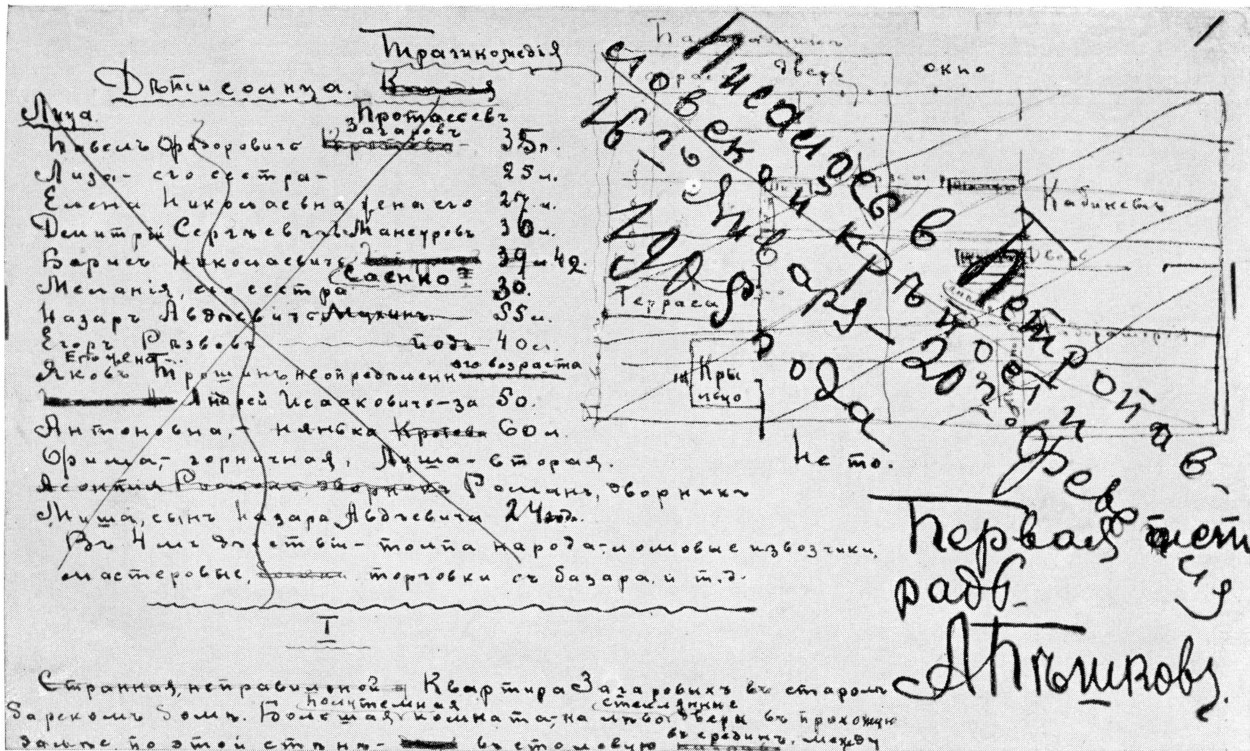 Трагикомедія
Дѣти солнца.
Лица.
Протасовъ
Захаровъ
Павелъ Ѳедоровичъ 35л.
Лиза - его сестра - 25л.
Елена Николаевна жена его 27л.
Дмитрій Сергѣевичъ Мансуровъ 36л.
Борисъ Николаевичъ 39л 42.
Саенко
Меланія, его сестра 30.
Назаръ Авдѣевичъ Мухинъ. 55л.
Егоръ Развовъ подъ 40л.
Его жена
Яковъ Трошинъ, неопредѣленн ого возраста
Андрей Исааковичъ - за 50.
Антоновна, - нянька Кротова 60л.
Фима, - горничная, Луша - вторая.
Роспинъ, дворникъ
Миша, сынъ Назара Авдѣевича 24 год.
Въ 4мъ дѣйствіи - толпа народа - ломовые извозчики,
мастеровые, торговки съ базара и т.д.
I
Странная, неправильной Квартира Захаровыхъ въ старомъ
полутемная стеклянные
барскомъ домѣ. Большая комната, на лѣво двери въ прихожую
далѣе по этой стѣнѣ - въ столовую въ срединѣ, между
1
дверь
окно
Кабинетъ
Терраса
Кры
льцо
Не то.
Писалось в Петропав-
ловской крѣпости
16-го января - 20го февраля
1905 года
Первая тет
радь.
АПѣшковъ.